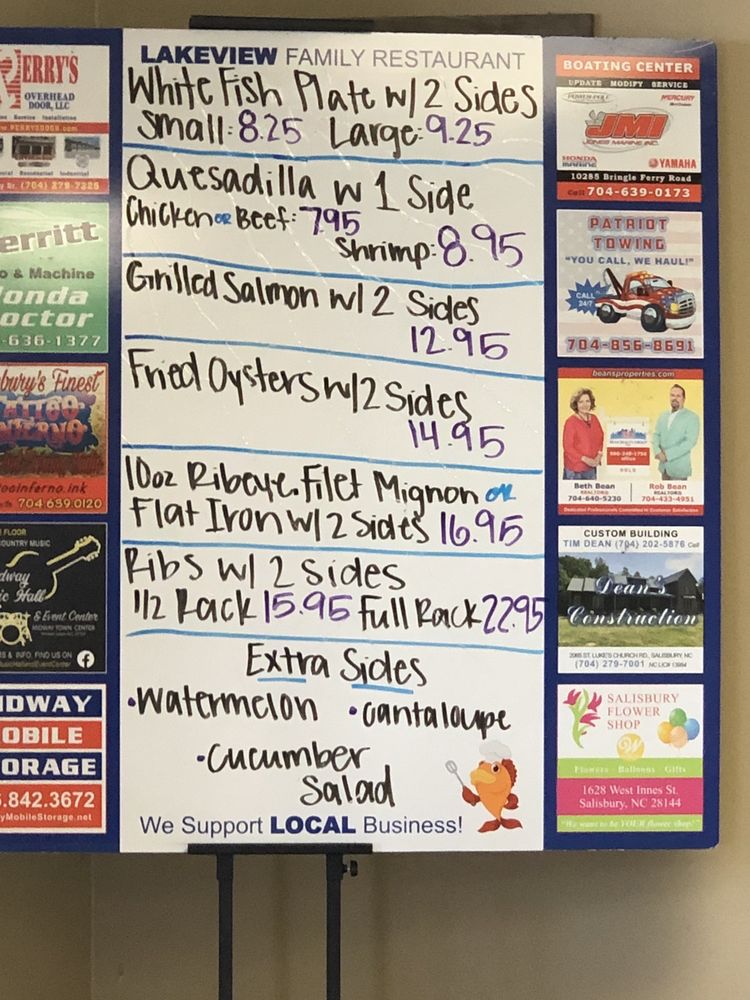 LAKEVIEW FAMILY RESTAURANT
White Fish Plate w/ 2 Sides
Small: 8.25 Large: 9.25
Quesadilla w 1 Side
Chicken or Beef: 7.95
Shrimp: 8.95
Grilled Salmon w/ 2 Sides
12.95
Fried Oysters w/ 2 Sides
14.95
10oz Ribeye, Filet Mignon or
Flat Iron w/ 2 Sides 16.95
Ribs w/ 2 Sides
1/2 Rack 15.95 Full Rack 22.95
Extra Sides
• Watermelon • Cantaloupe
• Cucumber
Salad
We Support LOCAL Business!
ERRY'S
OVERHEAD
DOOR, LLC
(704) 279-7325
erritt
o & Machine
onda
octor
-636-1377
bury's Finest
ATTOO
NFERNO
ooinferno.ink
704 639.0120
FLOOR
OUNTRY MUSIC
dway
ic Hall
& Event Center
MIDWAY TOWN CENTER
S & INFO, FIND US ON
IDWAY
OBILE
ORAGE
.842.3672
yMobileStorage.net
BOATING CENTER
UPDATE MODIFY SERVICE
POWER-POLE MERCURY
JMI
JONES MARINE INC.
HONDA
MARINE
YAMAHA
10285 Bringle Ferry Road
Call 704-639-0173
PATRIOT
TOWING
"YOU CALL, WE HAUL!"
CALL
24/7
704-856-8691
beansproperties.com
Beth Bean Rob Bean
REALTOR® REALTOR®
704-640-5230 704-433-4951
Dedicated Professionals Committed to Customer Satisfaction
CUSTOM BUILDING
TIM DEAN (704) 202-5876 Cell
Dean's
Construction
2085 ST. LUKE'S CHURCH RD., SALISBURY, NC
(704) 279-7001 NC LIC# 13984
SALISBURY
FLOWER
SHOP
Flowers · Balloons · Gifts
1628 West Innes St.
Salisbury, NC 28144
"We want to be YOUR flower shop!"